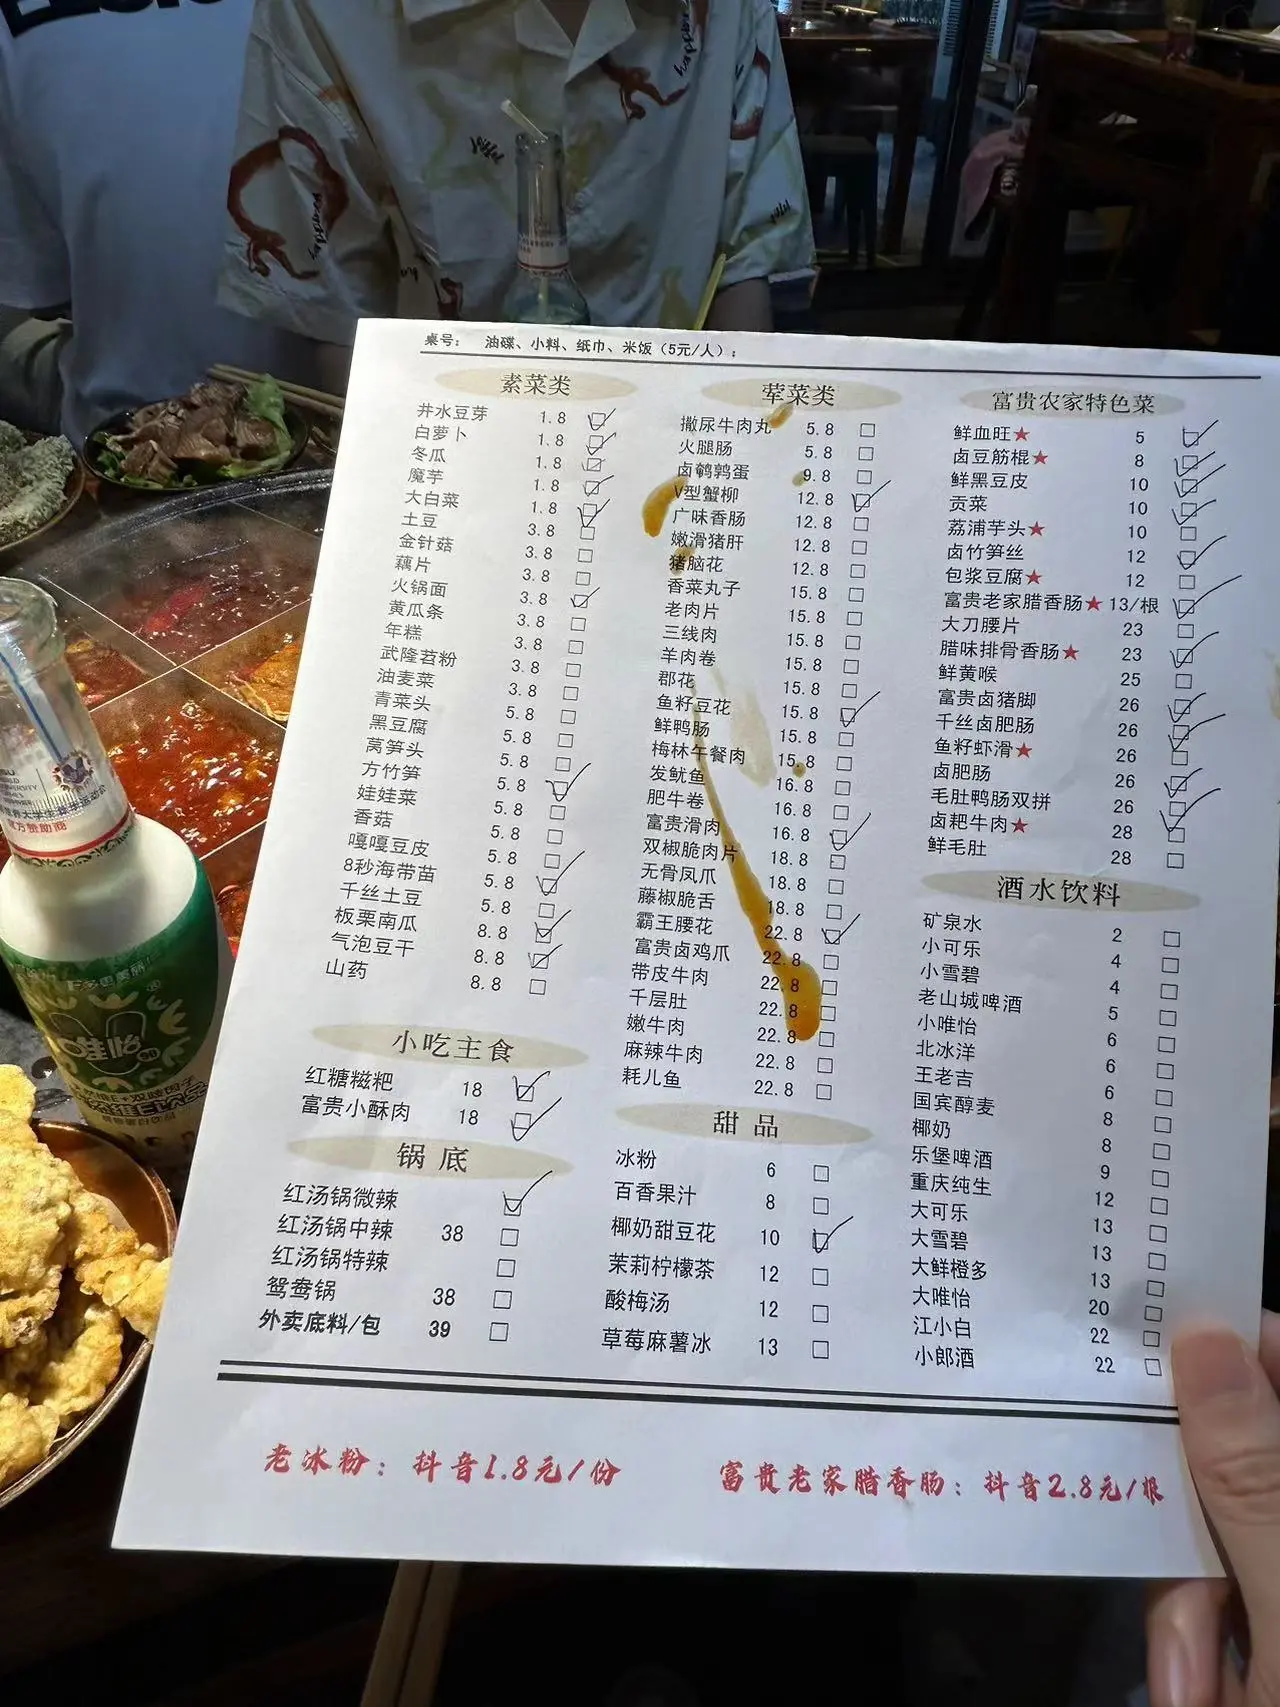 桌号： 油碟、小料、纸巾、米饭（5元/人）：
素菜类
井水豆芽 1.8
白萝卜 1.8
冬瓜 1.8
魔芋 1.8
大白菜 1.8
土豆 3.8
金针菇 3.8
藕片 3.8
火锅面 3.8
黄瓜条 3.8
年糕 3.8
武隆苕粉 3.8
油麦菜 3.8
青菜头 5.8
黑豆腐 5.8
莴笋头 5.8
方竹笋 5.8
娃娃菜 5.8
香菇 5.8
嘎嘎豆皮 5.8
8秒海带苗 5.8
千丝土豆 5.8
板栗南瓜 8.8
气泡豆干 8.8
山药 8.8
小吃主食
红糖糍粑 18
富贵小酥肉 18
锅底
红汤锅微辣
红汤锅中辣 38
红汤锅特辣
鸳鸯锅 38
外卖底料/包 39
荤菜类
撒尿牛肉丸 5.8
火腿肠 5.8
卤鹌鹑蛋 9.8
V型蟹柳 12.8
广味香肠 12.8
嫩滑猪肝 12.8
猪脑花 12.8
香菜丸子 15.8
老肉片 15.8
三线肉 15.8
羊肉卷 15.8
郡花 15.8
鱼籽豆花 15.8
鲜鸭肠 15.8
梅林午餐肉 15.8
发鱿鱼 16.8
肥牛卷 16.8
富贵滑肉 16.8
双椒脆肉片 18.8
无骨凤爪 18.8
藤椒脆舌 18.8
霸王腰花 22.8
富贵卤鸡爪 22.8
带皮牛肉 22.8
千层肚 22.8
嫩牛肉 22.8
麻辣牛肉 22.8
耗儿鱼 22.8
甜品
冰粉 6
百香果汁 8
椰奶甜豆花 10
茉莉柠檬茶 12
酸梅汤 12
草莓麻薯冰 13
富贵农家特色菜
鲜血旺★ 5
卤豆筋棍★ 8
鲜黑豆皮 10
贡菜 10
荔浦芋头★ 10
卤竹笋丝 12
包浆豆腐★ 12
富贵老家腊香肠★ 13/根
大刀腰片 23
腊味排骨香肠★ 23
鲜黄喉 25
富贵卤猪脚 26
千丝卤肥肠 26
鱼籽虾滑★ 26
卤肥肠 26
毛肚鸭肠双拼 26
卤粑牛肉★ 28
鲜毛肚 28
酒水饮料
矿泉水 2
小可乐 4
小雪碧 4
老山城啤酒 5
小唯怡 6
北冰洋 6
王老吉 6
国宾醇麦 8
椰奶 8
乐堡啤酒 9
重庆纯生 12
大可乐 13
大雪碧 13
大鲜橙多 13
大唯怡 20
江小白 22
小郎酒 22
老冰粉：抖音1.8元/份 富贵老家腊香肠：抖音2.8元/根
唯怡